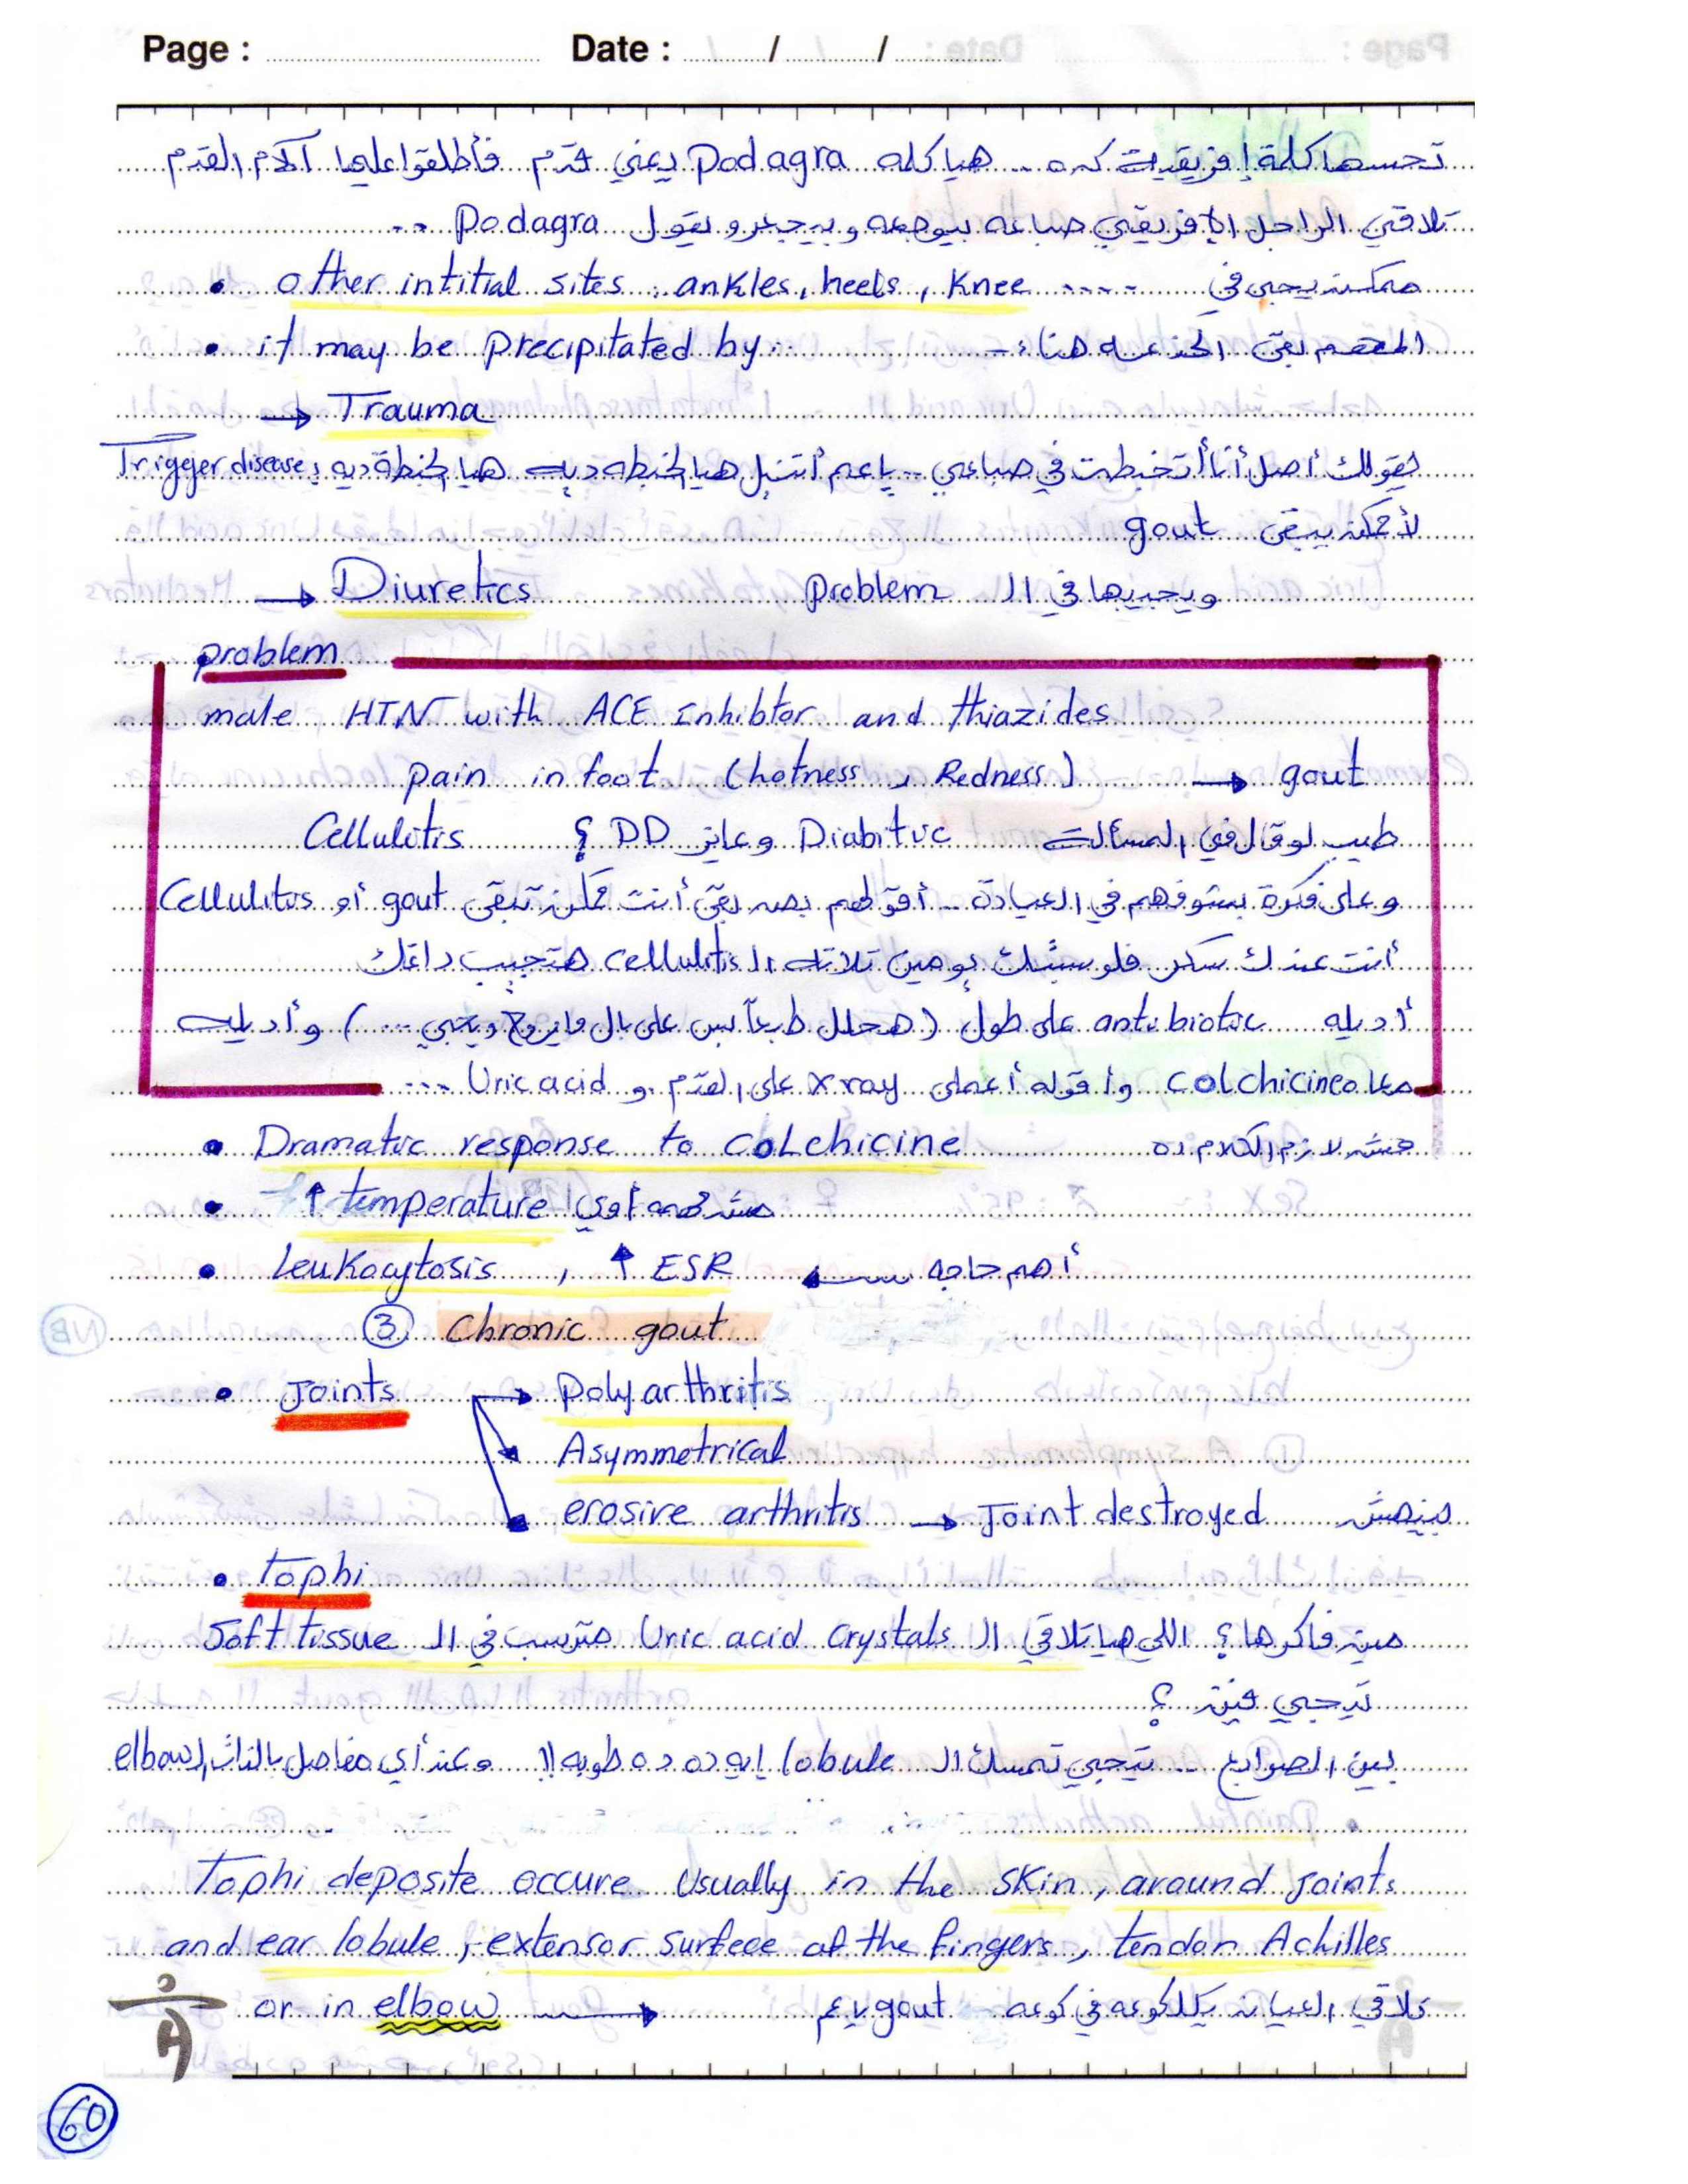 Page : Date : / /
تحسها كلمة إفريقية كده ... هيا كلمه Podagra يعني قدم فأطلقوا عليها آلام القدم
تلاقي الراجل الإفريقي صباعه بيوجعه وبيجري ويقول Podagra ..
• other intitial sites : ankles, heels, Knee .... ممكن يجي في
• it may be precipitated by:- المهم بقى هنا :-
→ Trauma
يقولك أصل أنا أتخبطت في صباعي .. يا عم أتنيل هيا الخبطه ديه هيا الخبطة ديه Trigger disease
لأ ممكن يبقى gout
→ Diuretics ويجيبها في الـ Problem
problem
male HTN with ACE Inhibtor and thiazides
pain in foot (hotness, Redness) → gout
طيب لو قال في المسألة Diabitic وعايز DD ؟ Cellulitis
وعلى فكرة بنشوفهم في العيادة .. أقولهم بصه بقى أنت ممكن تبقى gout أو Cellulitis
أنت عندك سكر فلو سبتك يومين تلاته الـ cellulitis هتجيب داغك
أديله antibiotic على طول (هحلل طبعاً بس على بال ما يروح ويجي ...) وأديله
معاه colchicine وأقوله أعملي X ray على القدم و Uric acid ...
• Dramatic response to colchicine مش لازم الكلام ده
• ↑ temperature مش مهمه أوي
• Leukocytosis , ↑ ESR ← أهم حاجه
③ Chronic gout
• Joints → Polyarthritis
Asymmetrical
erosive arthritis → Joint destroyed
• tophi
مين فاكرها ؟ اللي هيا تلاقي الـ Uric acid crystals مترسب في الـ Soft tissue
تيجي فين ؟
بين الصوابع .. تيجي تمسك الـ lobule إيه ده ده طوبه !! وعند أي مفاصل بالذات الـ elbow
Tophi deposite occure Usually in the skin, around joints
and ear lobule, extensor surfece of the fingers, tendon Achilles
or in elbow → تلاقي العيان في كوعه gout يا عم
60